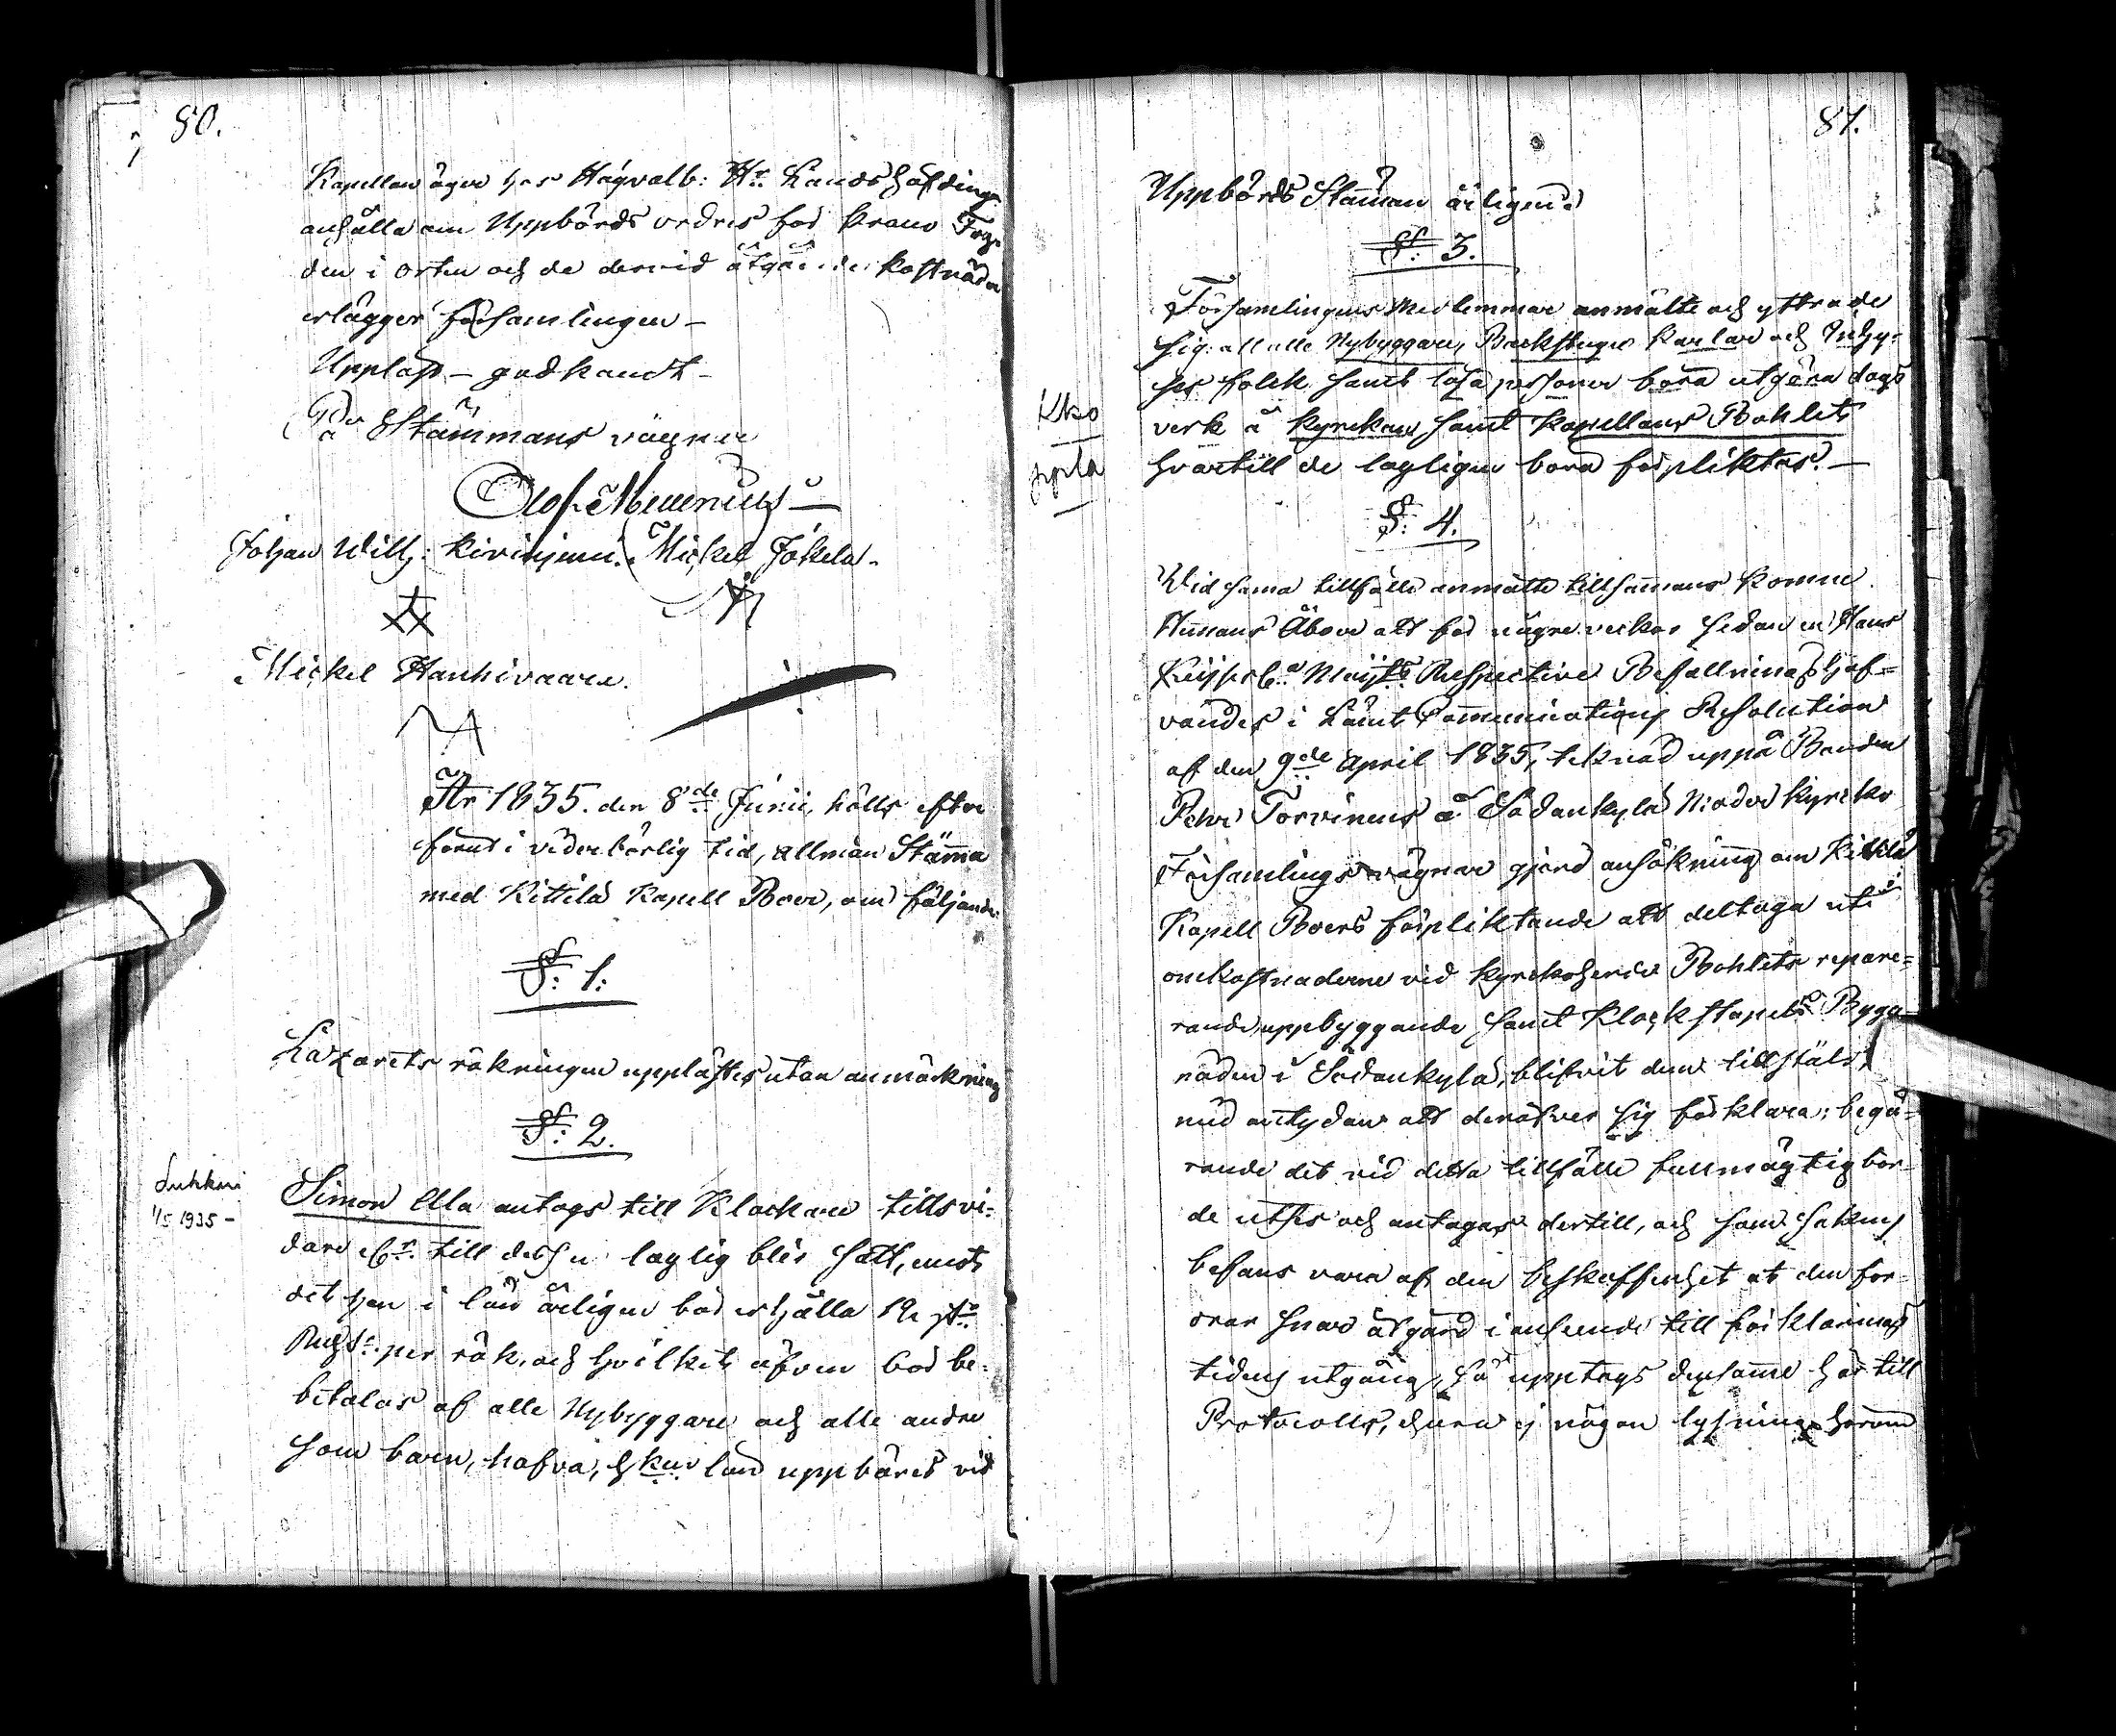 80.
Kapellan äger hos Högvälb: Hr. Landshöfdinge
anhålla om Uppbörds ordres för Krono Fog-
den i Orten och de dervid åtgående kostnader
erlägger församlingen –
Uppläst – godkändt –
På Stämmans vägnar
Olof
Johan Wilh: Kiviniemi. Mickel Jokela.
Mickel Hanhivaara.
År 1835. den 8de Junii, hölls efter
förut i vederbörlig tid, allmän Stämma
med Kittilä Kapell Boer, om följande.
§: 1:
Lazarets räkningen upplästes utan anmärkning
§: 2.
Sukkari
1/5 1935 –
Simon Ella antogs till Klockare tillsvi-
dare till dess en laglig blir satt, emot
det han i lön årligen bör erhålla 12
per rök, och hvilket äfven bör be-
betalas af alla Nybyggare och alla andra
som barn, hafva, lön uppbäres vid
81.
Uppbörds Stämman årligen.
§: 3.
Församlingens Medlemmar anmälte och yttrade
sig: att alla Nybyggare, Backstugu Karlar och Inhy-
ses folk samt lösa personer böra utgöra dags
verk å Kyrkan samt Kapellans Bohlet
hvartill de lagligen böra förpliktas. –
Kko
ppla
§: 4.
Wid sama tillfälle anmälte tillsammans Komne
Åboer att för några veckor sedan en Hans
Keijserl:a Maij:ts Respective Befallningshaf-
vandes i Länet Communications Resolution
af den 9de April 1835, teknad uppå Bonden
Petter Torvinens å Sodankylä Moder Kyrko
Församlings vägnar gjord ansökning om Kittilä
Kapell Boers förpliktande att deltaga uti
omkostnaderne vid Kyrkoherde Bohlets repare-
rande, uppbyggande samt Klockstapels Bygg-
naden i Sodankylä, blifvit dem tillstäld,
med antydan att deröfver sig förklara; begä-
rande det vid detta tillfälle fullmägtig bor-
de utses och antagas dertill, och som saken
befans vara af den beskaffenhet at den for-
drar snar åtgärd i anseende till förklarings
tidens utgång, så upptogs densamme här till
Protocolls, ehuru ej någon lysning härom